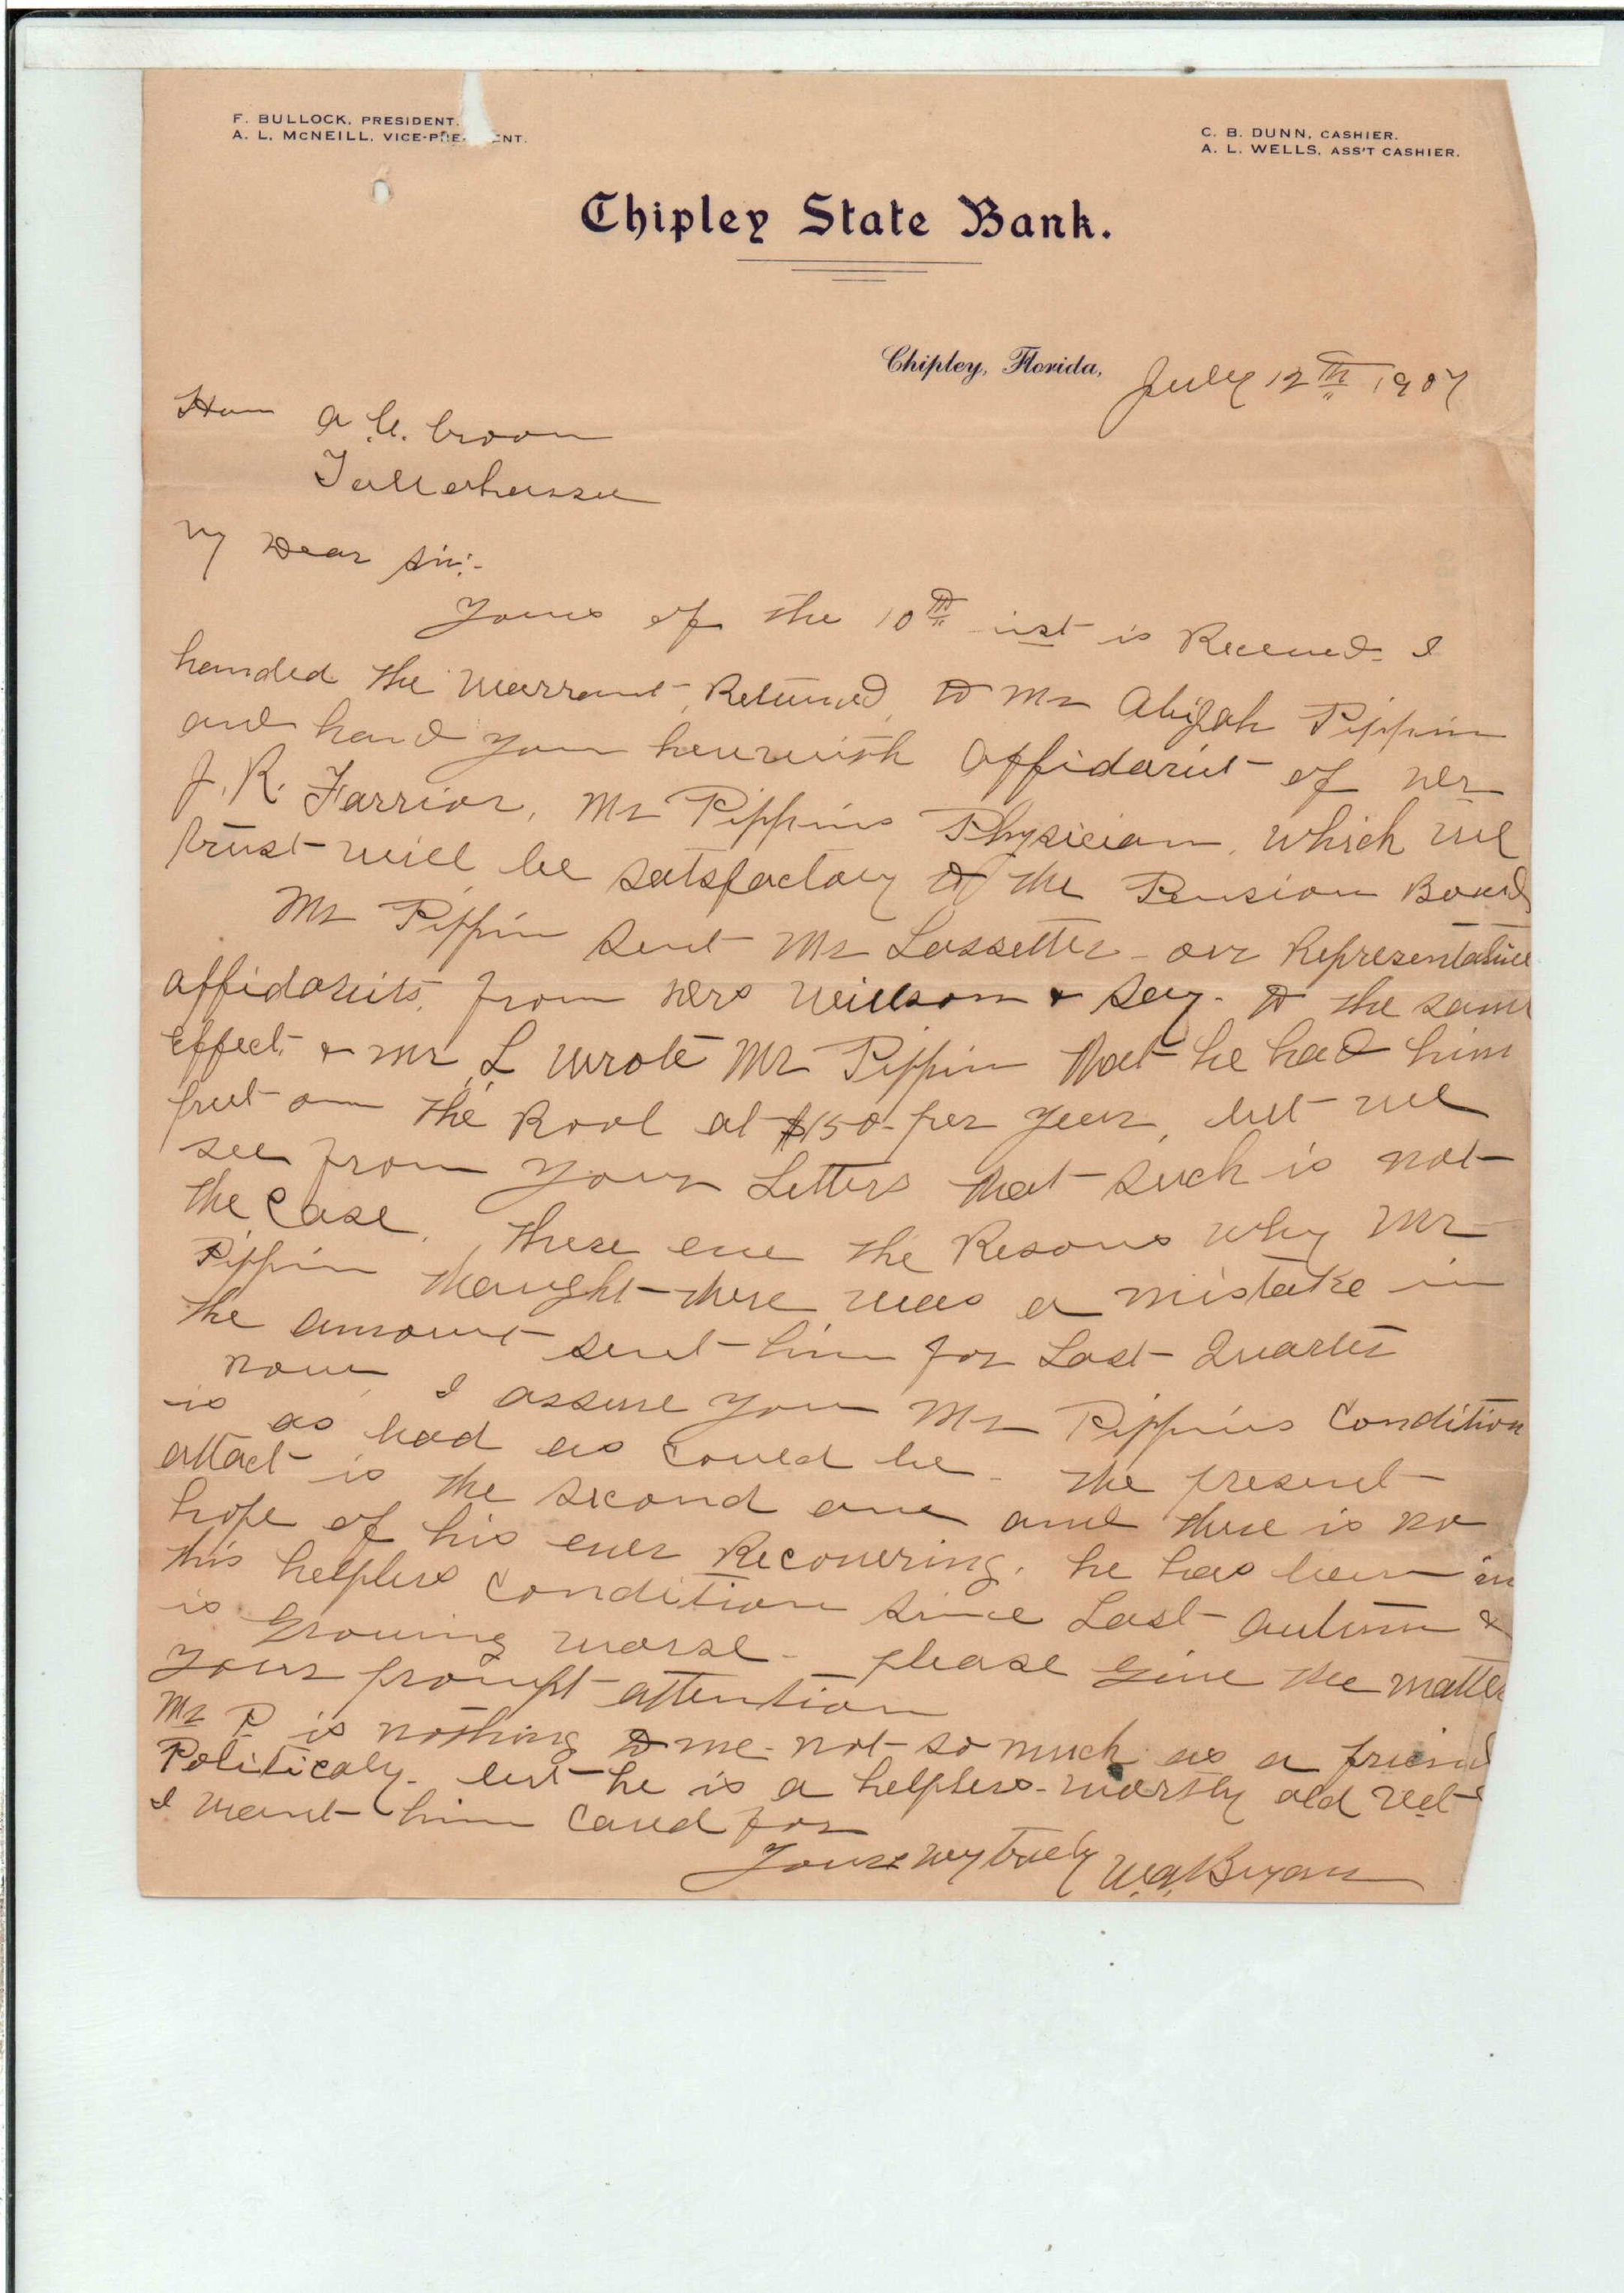 F. BULLOCK, PRESIDENT.
A. L. McNEILL, VICE-PRE ENT.
C. B. DUNN, CASHIER.
A. L. WELLS, ASS'T CASHIER.
Chipley State Bank.
Chipley, Florida, July 12th 1907
Hon A. C. Croom
Tallahassee
My Dear Sir:-
Yours of the 10th inst is Received. I
handed the Warrant, Returned, to Mr Abijah Pippin
and hand you herewith affidavit of Dr
J. R. Farrior, Mr Pippins Physician, which we
trust will be satsfactory to the Pension Board
Mr Pippin sent Mr Lassetter - our Representative
affidavits, from Drs Willson & Say - to the same
effect, & Mr L wrote Mr Pippin that he had him
put on the Rool at $150- per year, but we
see from your Letters that such is not
the case. These are the Resons why Mr
Pippin thaught there was a mistake in
the amount sent him for Last Quarter
now, I assure you Mr Pippins condition
is as bad as could be - the present
attact is the second one and there is no
hope of his ever Recovering. he has been in
this helpless condition since Last autum &
is growing worse - please give the matter
your prompt attention
Mr P. is nothing to me - not so much as a friend
Politicaly - but he is a helpless - worthy old Vet &
I want him cared for
Yours very truly W. A. Bryan